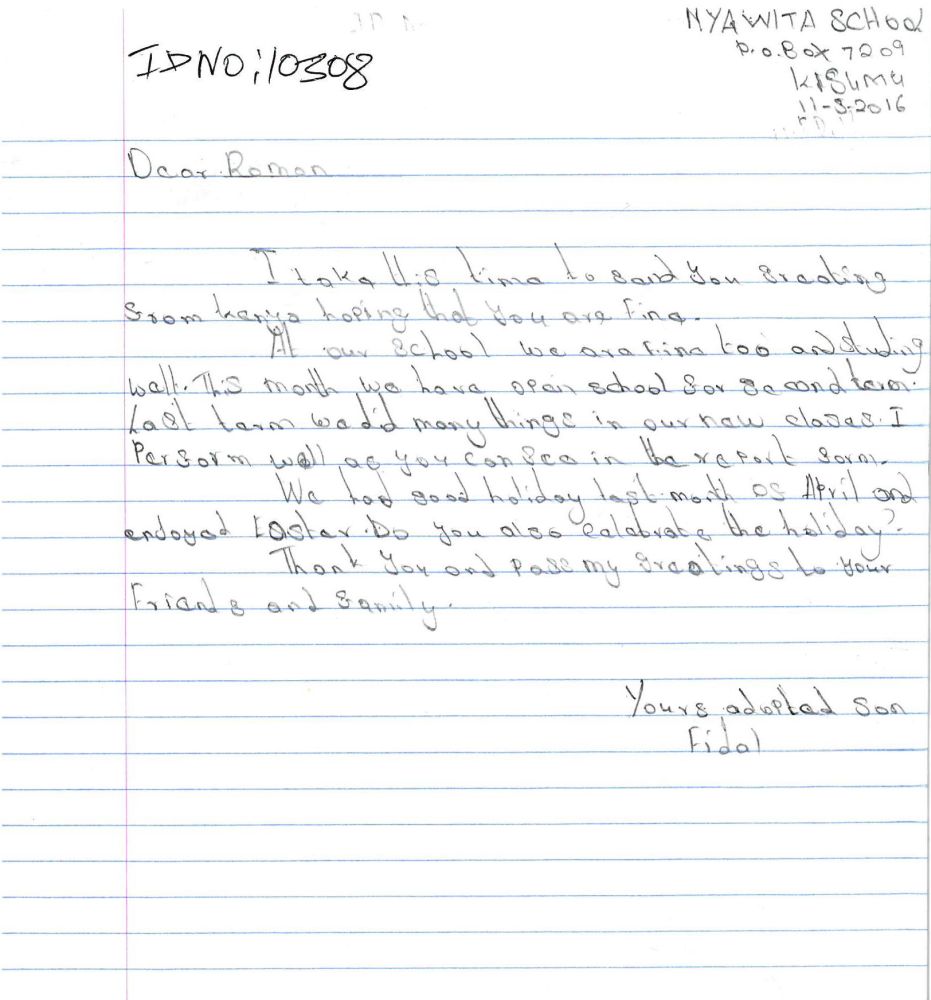 NYAWITA SCHool
P.o.Box 7209
IDNO:10308
KISUMU
11-5-2016
Dear Roman
I take this time to send you greeting
from kenya hoping that you are fine.
At our school we are fine too and studing
well. This month we have open school for second term.
Last term we did many things in our new clases. I
Perform well as you can see in the report form.
We had good holiday last month of April and
endoyed Easter. Do you also celebrate the holiday?
Thank you and pass my greetings to your
Friends and family.
Yours adopted son
Fidel